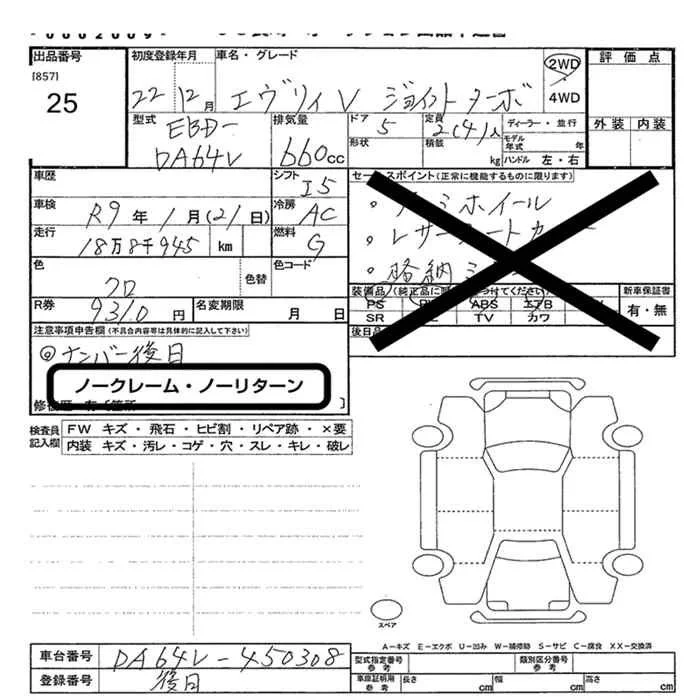 出品番号
[857]
25
初度登録年月
22年 12月
車名・グレード
エヴリィV ジョイントターボ
2WD
4WD
評価点
外装 内装
型式
EBD-
DA64V
排気量
660cc
ドア
5
形状
定員
2(4)人
積載
kg
ディーラー・並行
モデル
年式 年
ハンドル 左・右
車歴
シフト
I5
セールスポイント(正常に機能するものに限ります)
・アルミホイール
・レザーシートカバー
・格納ミラー
車検
R9年 1月(21日)
冷房
AC
走行
18万8千945 km
燃料
G
色
クロ
色替
色コード
R券
9310円
名変期限
月 日
装備品(純正品に限
つけてください)
PS
ABS エアB
SR TV カワ
新車保証書
有・無
後日品
注意事項申告欄(不具合内容等は具体的に記入して下さい)
◎ナンバー後日
ノークレーム・ノーリターン
検査員
記入欄
FW キズ・飛石・ヒビ割・リペア跡・×要
内装 キズ・汚レ・コゲ・穴・スレ・キレ・破レ
スペア
A-キズ E-エクボ U-凹み W-補修跡 S-サビ C-腐食 XX-交換済
車台番号
DA64V-450308
登録番号
後日
型式指定番号
参考
類別区分番号
参考
車庫証明用
参考
長さ cm
幅 cm
高さ cm